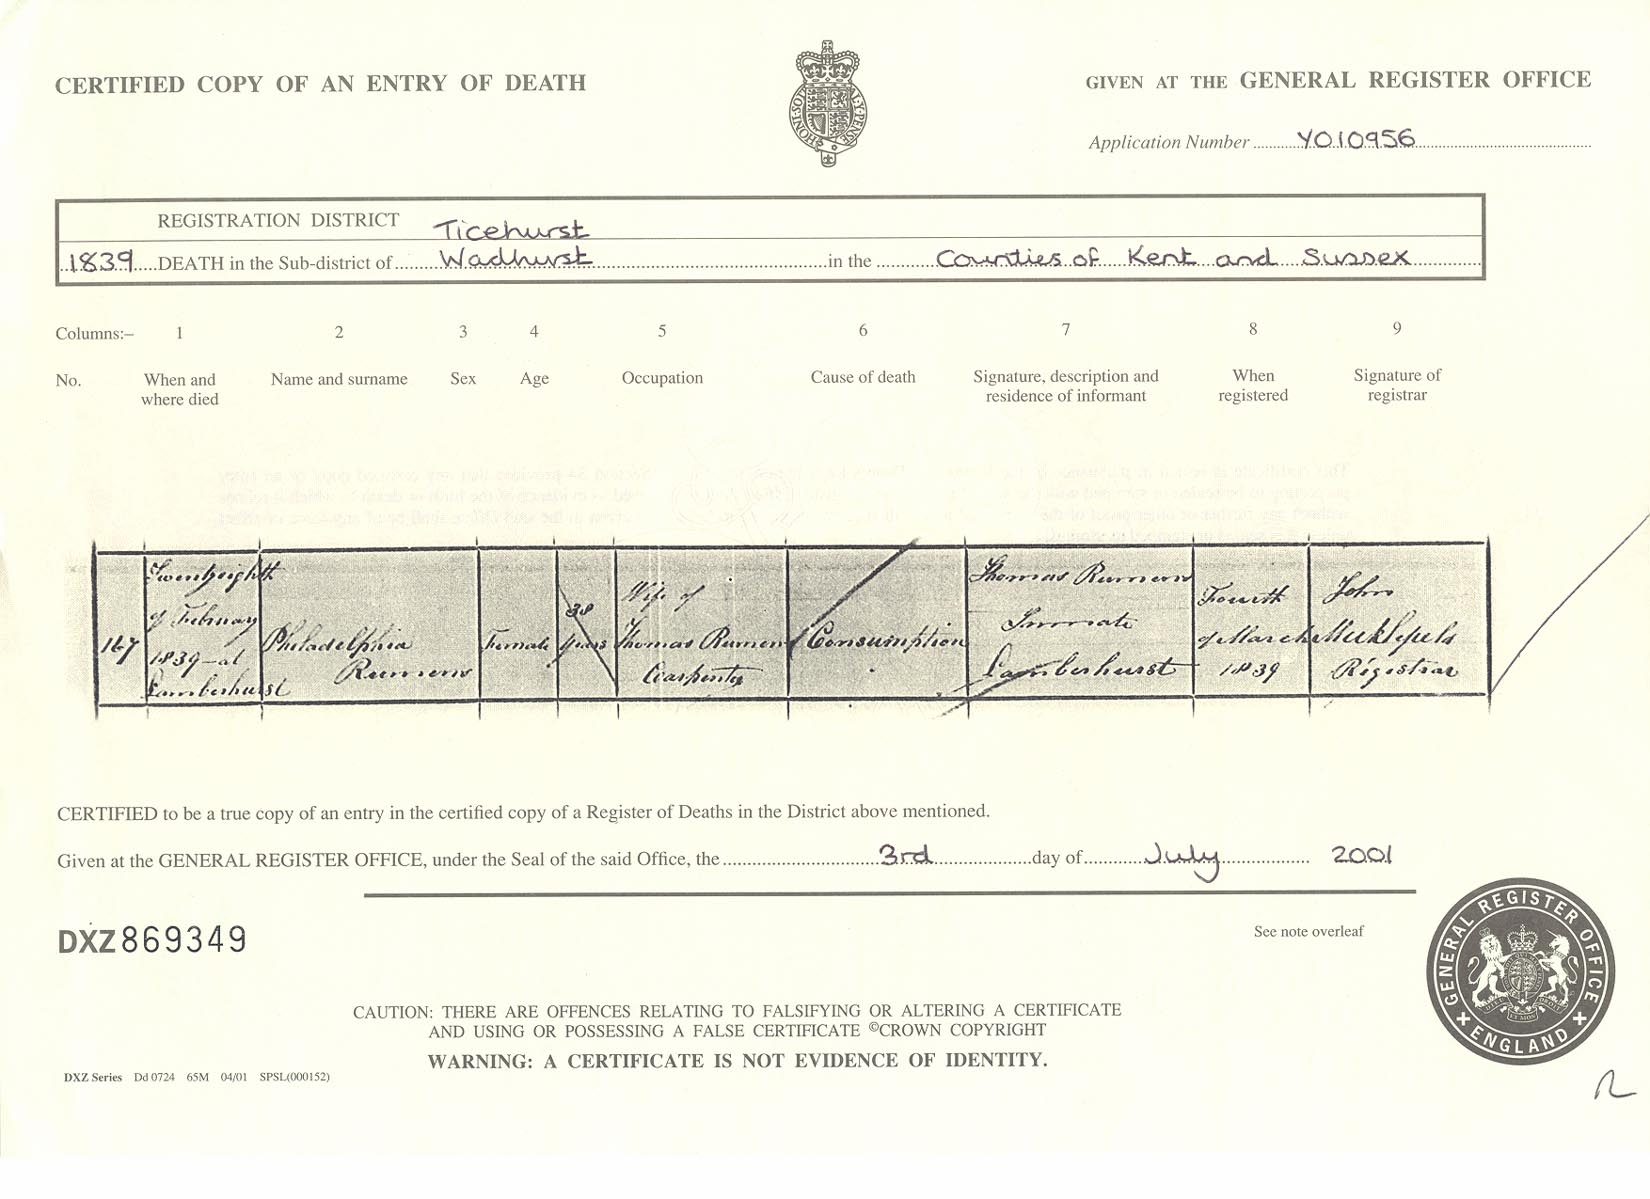 CERTIFIED COPY OF AN ENTRY OF DEATH
GIVEN AT THE GENERAL REGISTER OFFICE
Application Number Y010956
REGISTRATION DISTRICT Ticehurst
1839 DEATH in the Sub-district of Wadhurst in the Counties of Kent and Sussex
Columns:– 1 2 3 4 5 6 7 8 9
No. When and where died Name and surname Sex Age Occupation Cause of death Signature, description and residence of informant When registered Signature of registrar
167
of February
1839 – at
Lamberhurst
Philadelphia
Rumens
Female
38
years
Wife of
Thomas Rumens
Carpenter
Consumption
Thomas Rumens
Inmate
Lamberhurst
Fourth
of March
1839
John
Registrar
CERTIFIED to be a true copy of an entry in the certified copy of a Register of Deaths in the District above mentioned.
Given at the GENERAL REGISTER OFFICE, under the Seal of the said Office, the 3rd day of July 2001
DXZ 869349
See note overleaf
GENERAL REGISTER OFFICE
ENGLAND
CAUTION: THERE ARE OFFENCES RELATING TO FALSIFYING OR ALTERING A CERTIFICATE
AND USING OR POSSESSING A FALSE CERTIFICATE ©CROWN COPYRIGHT
WARNING: A CERTIFICATE IS NOT EVIDENCE OF IDENTITY.
DXZ Series Dd 0724 65M 04/01 SPSL(000152)